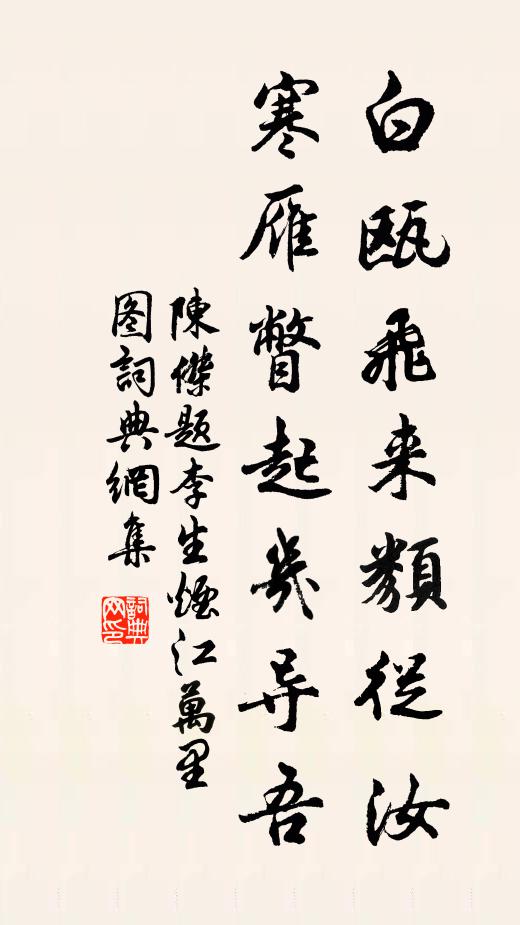 白瓯飛来類從汝
寒雁瞥起幾导吾
陳傑題李生煙江萬里
图詞典網集
詞典网印